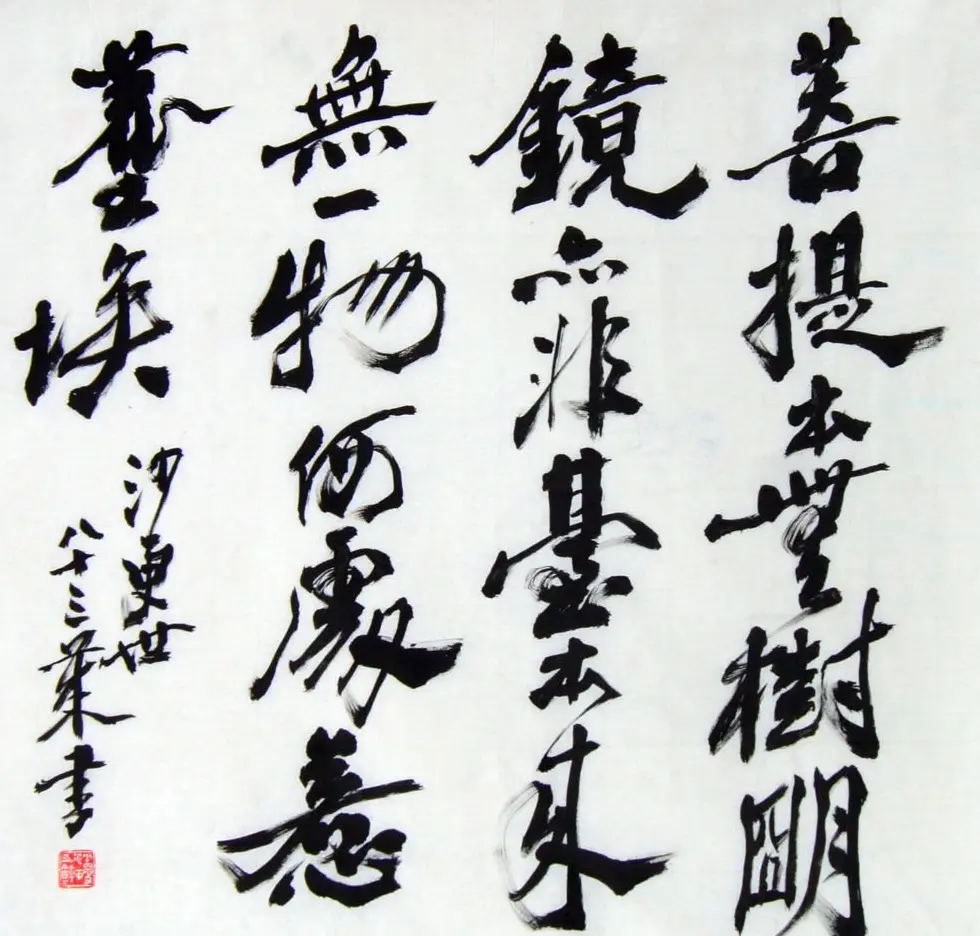 菩提本無樹明
鏡亦非臺本來
無一物何處惹
塵埃
沙更世
八十三葉書